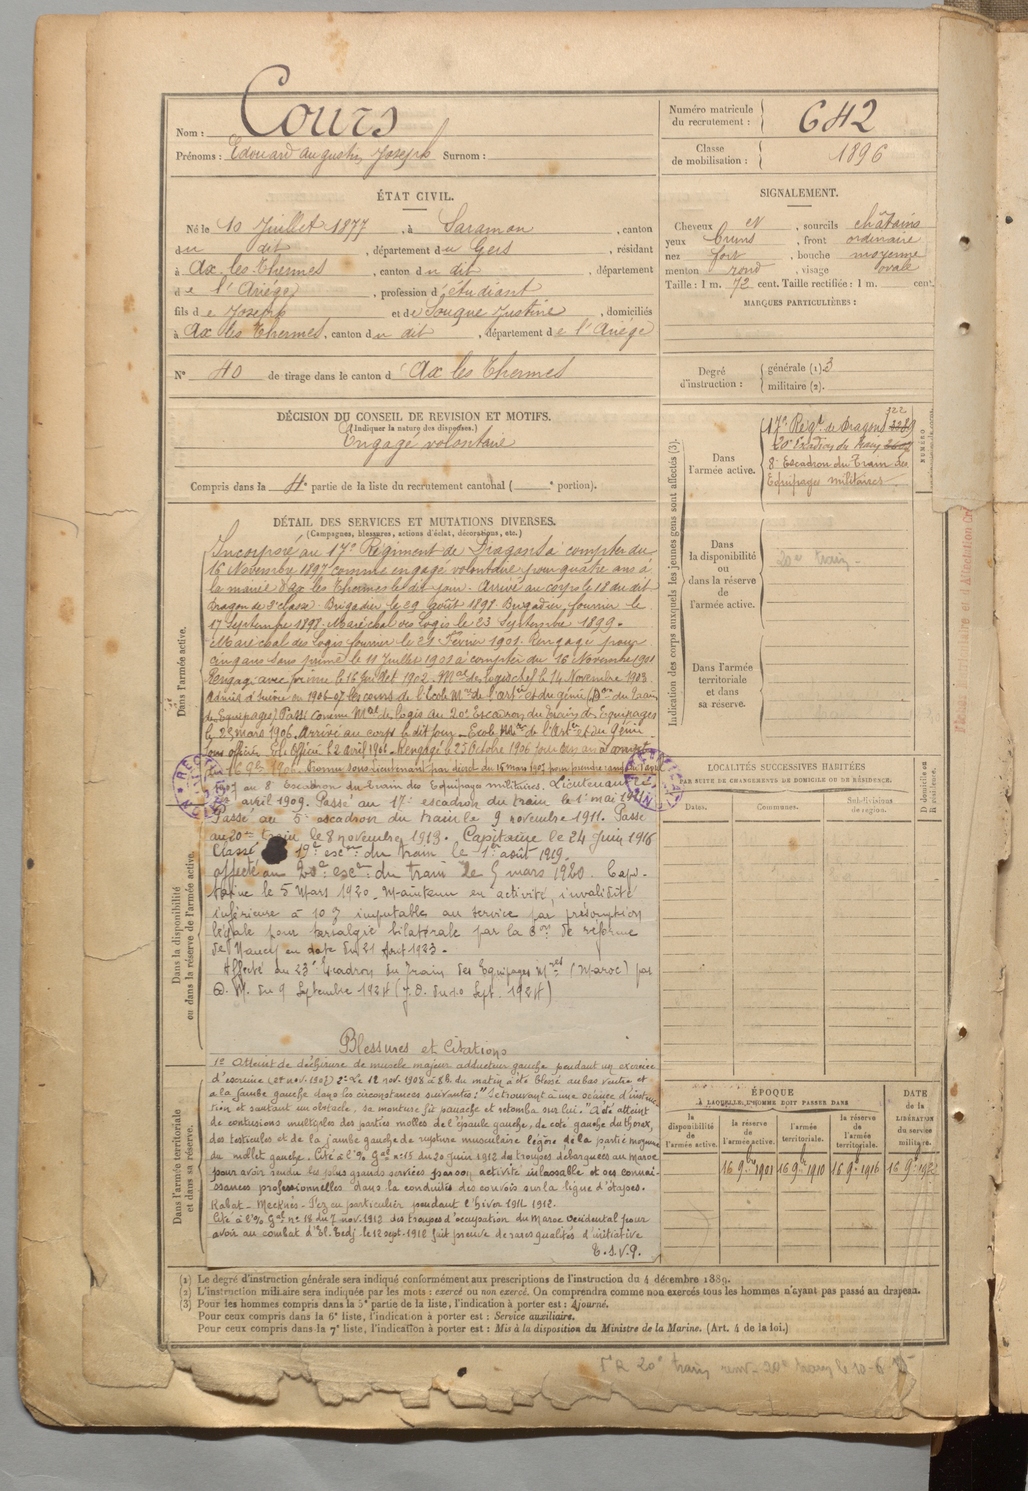 Nom : Cours
Prénoms : Edouard Augustin Joseph Surnom :
Numéro matricule du recrutement : 642
Classe de mobilisation : 1896
ÉTAT CIVIL.
Né le 10 Juillet 1877, à Saramon, canton
du dit, département du Gers, résidant
à Ax-les-Thermes, canton du dit, département
de l'Ariége, profession d'étudiant
fils de Joseph et de Souque Justine, domiciliés
à Ax les Thermes, canton du dit, département de l'Ariége
N° 40 de tirage dans le canton d'Ax les Thermes
SIGNALEMENT.
Cheveux et, sourcils châtains
yeux bruns, front ordinaire
nez fort, bouche moyenne
menton rond, visage ovale
Taille : 1 m. 72 cent. Taille rectifiée : 1 m. cent.
MARQUES PARTICULIÈRES :
Degré d'instruction : générale (1). 3
militaire (2).
DÉCISION DU CONSEIL DE REVISION ET MOTIFS.
(Indiquer la nature des dispenses.)
Engagé volontaire
Compris dans la 4e partie de la liste du recrutement cantonal ( e portion).
Indication des corps auxquels les jeunes gens sont affectés (3).
Dans l'armée active.
17e Régt de Dragons
20e Escadron du Train
8e Escadron du Train des
Equipages militaires
NUMÉRO
Dans la disponibilité ou dans la réserve de l'armée active.
20e train
Dans l'armée territoriale et dans sa réserve.
DÉTAIL DES SERVICES ET MUTATIONS DIVERSES.
(Campagnes, blessures, actions d'éclat, décorations, etc.)
Dans l'armée active.
Incorporé au 17e Régiment de Dragons à compter du
16 Novembre 1897 comme engagé volontaire pour quatre ans à
la mairie d'Ax les Thermes le dit jour. Arrivé au corps le 18 du dit
Dragon de 2e classe. Brigadier le 29 Août 1898. Brigadier fourrier le
17 Septembre 1898. Maréchal des Logis le 23 Septembre 1899.
Maréchal des Logis fourrier le 21 Février 1901. Rengagé pour
cinq ans sans prime le 11 Juillet 1901 à compter du 16 Novembre 1901
Rengagé avec prime le 16 Juillet 1902. Mal des Logis chef le 14 Novembre 1903.
Admis à suivre en 1906-07 les cours de l'Ecole Mre de l'artie et du génie (Don du Train
des Equipages) Passé comme Mal de Logis au 20e Escadron du Train des Equipages
le 23 mars 1906. Arrivé au corps le dit jour. Ecole Mre de l'Artie et du Génie
Sous officier El. Officier le 2 avril 1906. Rengagé le 25 Octobre 1906 pour
Nommé sous-lieutenant par décret du 15 mars 1907 pour prendre rang du 1er avril
1907 au 8e Escadron du Train des Equipages militaires. Lieutenant le
avril 1909. Passé au 17e escadron du train le 1er mai 1911
Passé au 5e escadron du train le 9 novembre 1911. Passé
au 20e train le 8 novembre 1913. Capitaine le 24 Juin 1916
Classé 19e escon du train le 1er août 1919.
affecté au 20e escon du train le 5 mars 1920. Capi-
taine le 5 Mars 1920. Maintenu en activité, invalidité
inférieure à 10 % imputable au service par présomption
légale pour tarsalgie bilatérale par la Con de réforme
de Nancy en date du 21 Aout 1923.
Affecté au 23e Escadron du Train des Equipages Mres (Maroc) par
D. M. du 9 Septembre 1924 (J. O. du 10 Sept. 1924)
Dans la disponibilité ou dans la réserve de l'armée active.
Blessures et Citations
Dans l'armée territoriale et dans sa réserve.
1° Atteint de déchirure de muscle majeur adducteur gauche pendant un exercice
d'escrime (21 nov. 1907) 2° Le 12 nov. 1908 à 8h du matin a été blessé au bas ventre et
à la jambe gauche dans les circonstances suivantes : "Se trouvant à une séance d'instruc-
tion et sautant un obstacle, sa monture fit panache et retomba sur lui." A été atteint
de contusions multiples des parties molles de l'épaule gauche, du coté gauche du thorax,
des testicules et de la jambe gauche de rupture musculaire légère de la partie moyenne
du mollet gauche. Cité à l'O. Gal n° 15 du 20 juin 1912 des troupes débarquées au Maroc
pour avoir rendu les plus grands services par son activité inlassable et ses connais-
sances professionnelles dans la conduite des convois sur la ligne d'étapes.
Rabat - Mecknès - Fez en particulier pendant l'hiver 1911-1912.
Cité à l'O. Gal n° 18 du 7 nov. 1912 des troupes d'occupation du Maroc Occidental pour
avoir au combat d'El. Tedj. le 12 sept. 1912 fait preuve de rares qualités d'initiative
T. S. V. P.
LOCALITÉS SUCCESSIVES HABITÉES
PAR SUITE DE CHANGEMENTS DE DOMICILE OU DE RÉSIDENCE.
Dates. Communes. Subdivisions de région. D domicile ou R résidence.
ÉPOQUE
À LAQUELLE L'HOMME DOIT PASSER DANS
la disponibilité de l'armée active.
la réserve de l'armée active.
l'armée territoriale.
la réserve de l'armée territoriale.
DATE de la LIBÉRATION du service militaire.
16 9bre 1901 16 9bre 1910 16 9bre 1916 16 9bre 1922
(1) Le degré d'instruction générale sera indiqué conformément aux prescriptions de l'instruction du 4 décembre 1889.
(2) L'instruction militaire sera indiquée par les mots : exercé ou non exercé. On comprendra comme non exercés tous les hommes n'ayant pas passé au drapeau.
(3) Pour les hommes compris dans la 5e partie de la liste, l'indication à porter est : Ajourné.
Pour ceux compris dans la 6e liste, l'indication à porter est : Service auxiliaire.
Pour ceux compris dans la 7e liste, l'indication à porter est : Mis à la disposition du Ministre de la Marine. (Art. 4 de la loi.)
20e train 20e train le 10-6